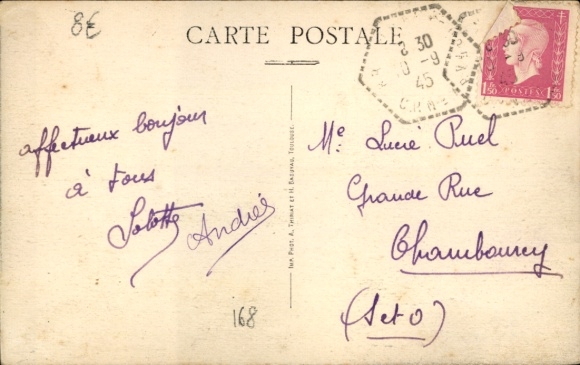 8€
CARTE POSTALE
8 30
10 -9
45
30
9
1f50 POSTES 1f50
affectueux bonjour
à tous
Lolotte
Andrée
Me Lucie Puel
Grande Rue
Chambourcy
(S et O)
IMP. PHOT. A. THIRIAT ET H. BASUYAU, TOULOUSE.
168